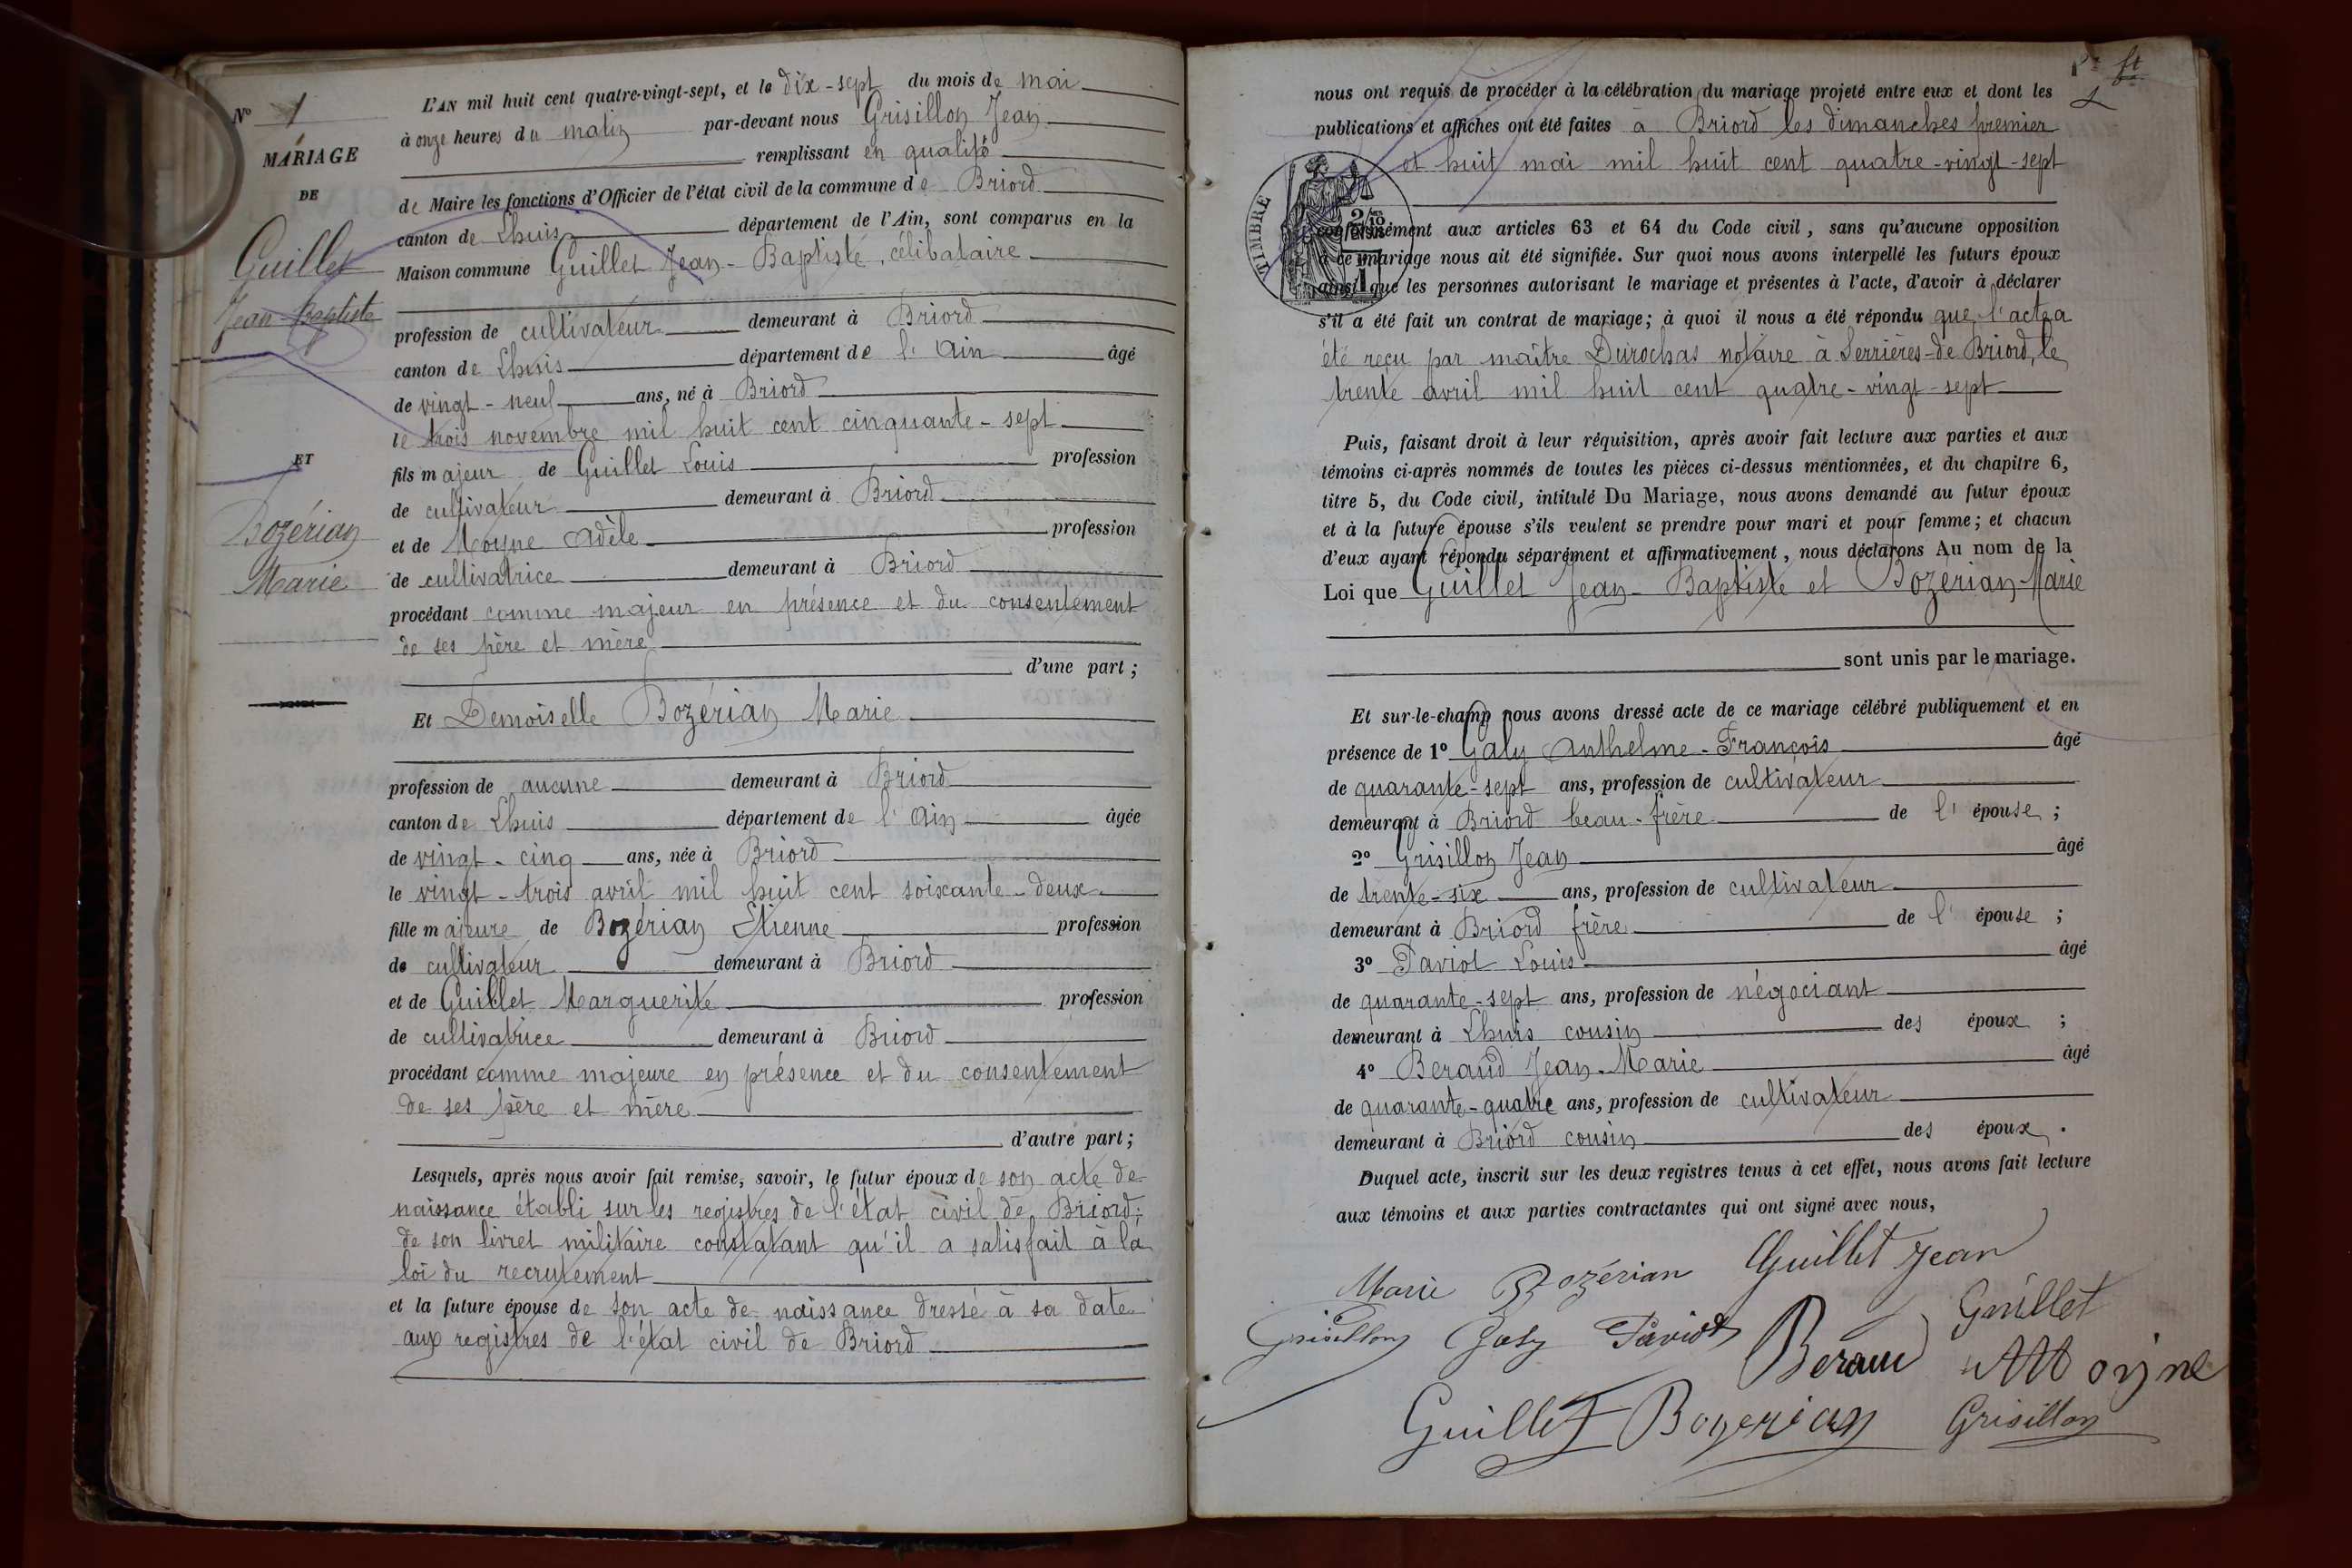 L'AN mil huit cent quatre-vingt-sept, et le dix-sept du mois de mai
à onze heures du matin par-devant nous Grisillon Jean
remplissant en qualité
de Maire les fonctions d'Officier de l'état civil de la commune de Briord
canton de Lhuis département de l'Ain, sont comparus en la
Maison commune Guillet Jean-Baptiste, célibataire
profession de cultivateur demeurant à Briord
canton de Lhuis département de l'Ain âgé
de vingt-neuf ans, né à Briord
le trois novembre mil huit cent cinquante-sept
fils majeur de Guillet Louis profession
de cultivateur demeurant à Briord
et de Moyne Adèle profession
de cultivatrice demeurant à Briord
procédant comme majeur en présence et du consentement
de ses père et mère
d'une part;
Et Demoiselle Bozérian Marie
profession de aucune demeurant à Briord
canton de Lhuis département de l'Ain âgée
de vingt-cinq ans, née à Briord
le vingt-trois avril mil huit cent soixante-deux
fille majeure de Bozérian Etienne profession
de cultivateur demeurant à Briord
et de Guillet Marguerite profession
de cultivatrice demeurant à Briord
procédant comme majeure en présence et du consentement
de ses père et mère
d'autre part;
Lesquels, après nous avoir fait remise, savoir, le futur époux de son acte de
naissance établi sur les registres de l'état civil de Briord;
de son livret militaire constatant qu'il a satisfait à la
loi du recrutement
et la future épouse de son acte de naissance dressé à sa date
aux registres de l'état civil de Briord
N° 1
MARIAGE
DE
Guillet
Jean-Baptiste
ET
Bozérian
Marie
nous ont requis de procéder à la célébration du mariage projeté entre eux et dont les
publications et affiches ont été faites à Briord les dimanches premier
et huit mai mil huit cent quatre-vingt-sept
TIMBRE
2/10
conformément aux articles 63 et 64 du Code civil, sans qu'aucune opposition
à ce mariage nous ait été signifiée. Sur quoi nous avons interpellé les futurs époux
ainsi que les personnes autorisant le mariage et présentes à l'acte, d'avoir à déclarer
s'il a été fait un contrat de mariage; à quoi il nous a été répondu que l'acte a
été reçu par maître Durochas notaire à Serrières-de-Briord, le
trente avril mil huit cent quatre-vingt-sept
Puis, faisant droit à leur réquisition, après avoir fait lecture aux parties et aux
témoins ci-après nommés de toutes les pièces ci-dessus mentionnées, et du chapitre 6,
titre 5, du Code civil, intitulé Du Mariage, nous avons demandé au futur époux
et à la future épouse s'ils veulent se prendre pour mari et pour femme; et chacun
d'eux ayant répondu séparément et affirmativement, nous déclarons Au nom de la
Loi que Guillet Jean-Baptiste et Bozérian Marie
sont unis par le mariage.
Et sur-le-champ nous avons dressé acte de ce mariage célébré publiquement et en
présence de 1° Galy Anthelme-François âgé
de quarante-sept ans, profession de cultivateur
demeurant à Briord beau-frère de l'épouse;
2° Grisillon Jean âgé
de trente-six ans, profession de cultivateur
demeurant à Briord frère de l'épouse;
3° Paviot Louis âgé
de quarante-sept ans, profession de négociant
demeurant à Lhuis cousin des époux;
4° Beraud Jean-Marie âgé
de quarante-quatre ans, profession de cultivateur
demeurant à Briord cousin des époux.
Duquel acte, inscrit sur les deux registres tenus à cet effet, nous avons fait lecture
aux témoins et aux parties contractantes qui ont signé avec nous,
Marie Bozérian Guillet Jean
Grisillon Galy Paviot Beraud Guillet
Moyne
Guillet Bozerian Grisillon